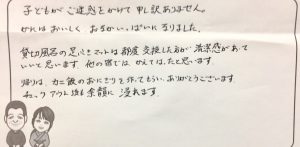 子どもがご迷惑をかけて申し訳ありません。
かにはおいしく、おなかいっぱいになりました。
貸切風呂の足ふきマットは都度交換した方が清潔感があって
いいと思います。他の宿では、かえては、たと思います。
帰りは、カニ飯のおにぎりを作ってもらい、ありがとうございます。
チェックアウト後も余韻に浸れます。